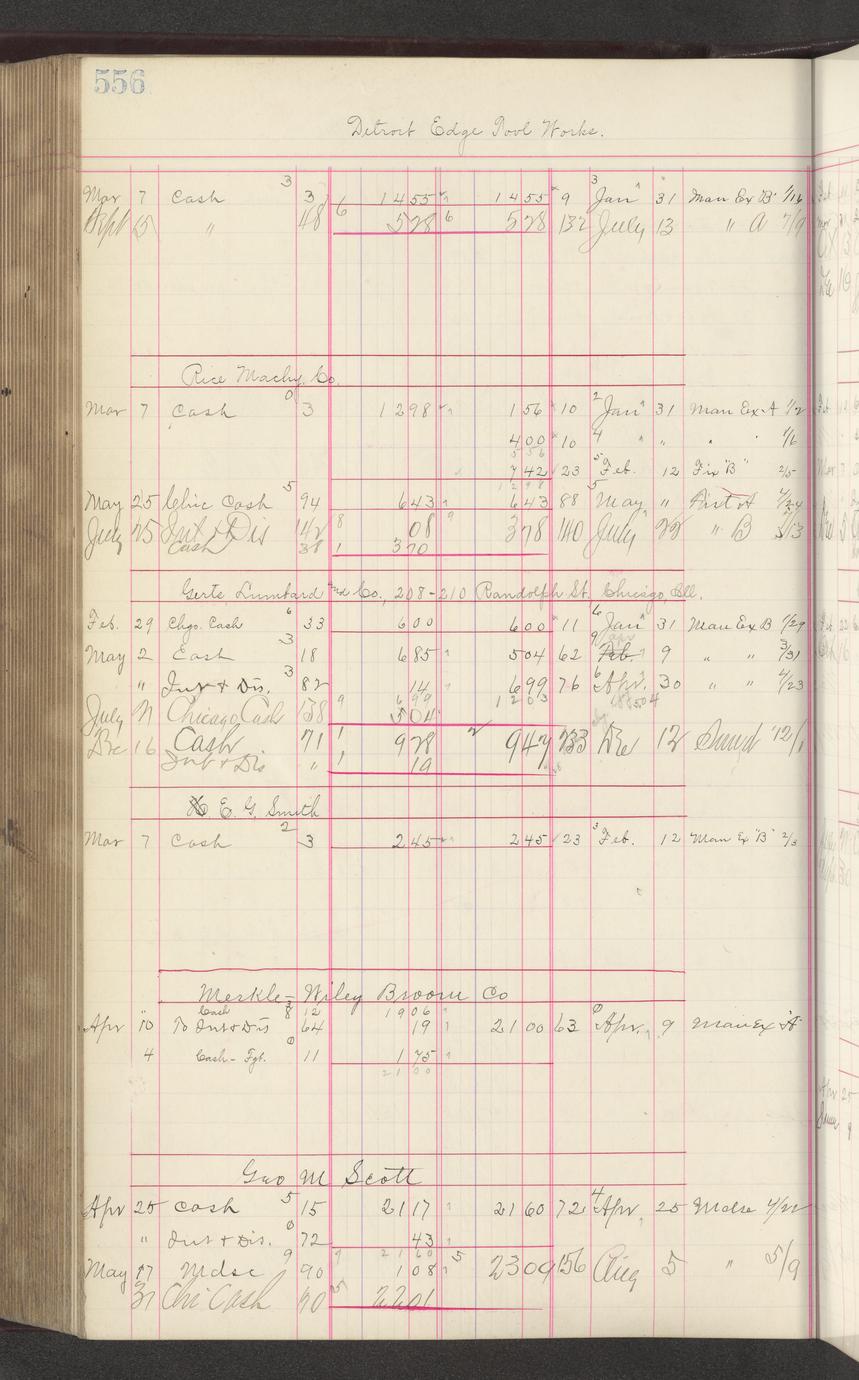 556
Detroit Edge Tool Works.
Mar 7 Cash 3 3 1455 1455 9 3 Jan 31 Man Ex "B" 1/16
Sept 15 " 48 6 578 6 578 132 July 13 " A 7/9
Rice Machy. Co.
Mar 7 Cash 0 3 1298 156 10 2 Jan 31 Man Ex A 1/2
400 10 4 " " " " 1/6
556
742 23 5 Feb. 12 Fix "B" 2/5
1298
May 25 Chic Cash 5 94 643 643 88 5 May "
July 25 Int & Dis 142 8 08 9 378 140 July 22 " B
Cash 38 1 370
Lumbard and Co., 208-210 Randolph St. Chicago, Ill.
Feb. 29 Chgo. Cash 6 33 600 600 11 6 Jan 31 Man Ex B 1/29
May 2 Cash 3 18 685 504 62 9 Feb. 9 " " 3/31
" Int & Dis. 3 82 14 699 76 6 Apr. 30 " " 4/23
699 1203
July 11 Chicago Cash 138 9 504
Dec 16 Cash 71 1 928 2 947 233 Dec 12 12/1
Int & Dis " 1 19
E. G. Smith
Mar 7 Cash 2 3 245 245 23 3 Feb. 12 Man Ex "B" 2/3
Merkle-Wiley Broom Co
Cash 3 12 1906
Apr 10 To Int & Dis 8 64 19 2100 63 0 Apr. 9 Man Ex "A"
4 Cash - Fgt. 0 11 175
2100
Geo M Scott
Apr 25 Cash 5 15 2117 2160 72 4 Apr 25 Mdse 4/22
" Int & Dis. 0 72 43
2160
May 17 Mdse 9 90 9 108 5 2309 156 Aug 5 " 5/9
31 Chi Cash 70 5 2201